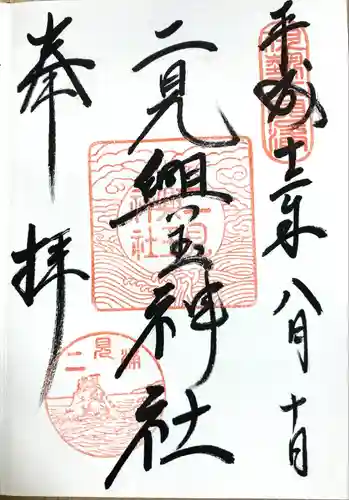 平成十二年
八月
十日
二見興玉神社
奉拝
二見興玉神社
二見浦